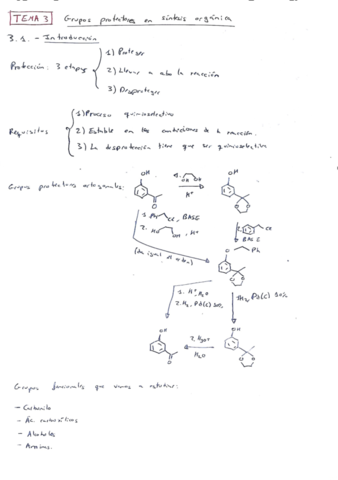 TEMA 3 Grupos protectores en síntesis orgánica
3.1.- Introducción
1) Proteger
Protección: 3 etapas
2) Llevar a cabo la reacción
3) Desproteger
1) Proceso quimioselectivo
Requisitos
2) Estable en las condiciones de la reacción.
3) La desprotección tiene que ser quimioselectiva
Grupos protectores ortogonales:
OH
OH
H⁺
O
1. Ph Cl, BASE
2. HO OH, H⁺
BASE
Ph
1. H⁺, H₂O
2. H₂, Pd(C) 30%
H₂, Pd(C) 30%
OH
OH
2. H₃O⁺
H₂O
Grupos funcionales que vamos a estudiar:
- Carbonilo
- Ác. carboxílicos
- Alcoholes
- Aminas.